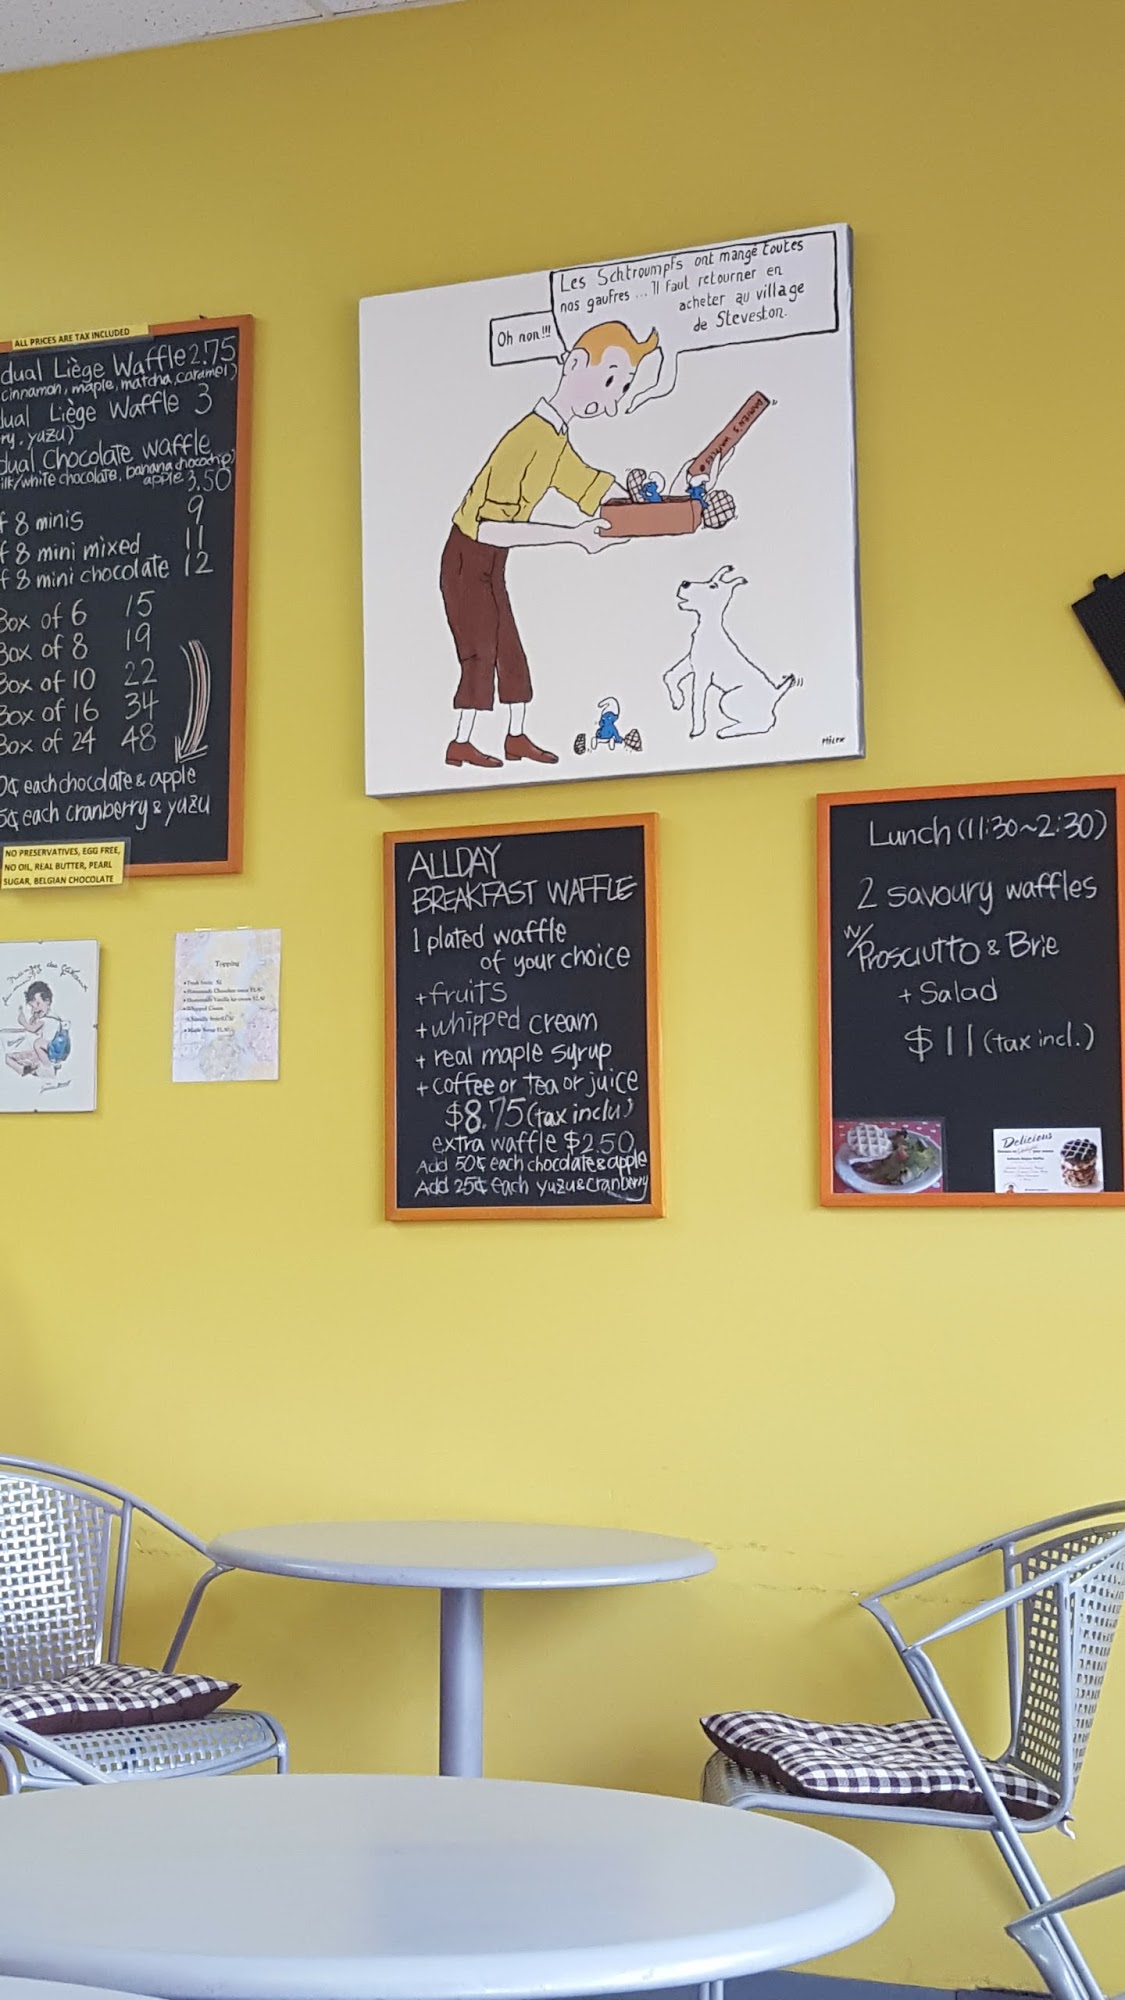 ALL PRICES ARE TAX INCLUDED
dual Liège Waffle 2.75
cinnamon, maple, matcha, caramel)
dual Liège Waffle 3
ry, yuzu)
dual Chocolate waffle
ilk/white chocolate, banana chocochip,
apple 3.50
f 8 minis 9
f 8 mini mixed 11
f 8 mini chocolate 12
Box of 6 15
Box of 8 19
Box of 10 22
Box of 16 34
Box of 24 48
0¢ each chocolate & apple
5¢ each cranberry & yuzu
NO PRESERVATIVES, EGG FREE,
NO OIL, REAL BUTTER, PEARL
SUGAR, BELGIAN CHOCOLATE
Les Schtroumpfs ont mangé toutes
nos gaufres ... Il faut retourner en
acheter au village
de Steveston.
Oh non!!!
DAMIEN'S WAFFLES
Topping
ALLDAY
BREAKFAST WAFFLE
1 plated waffle
of your choice
+ fruits
+ whipped cream
+ real maple syrup
+ coffee or tea or juice
$8.75 (tax inclu)
extra waffle $2.50
Add 50¢ each chocolate & apple
Add 25¢ each yuzu & cranberry
Lunch (11:30~2:30)
2 savoury waffles
w/ Prosciutto & Brie
+ Salad
$11 (tax incl.)
Delicious